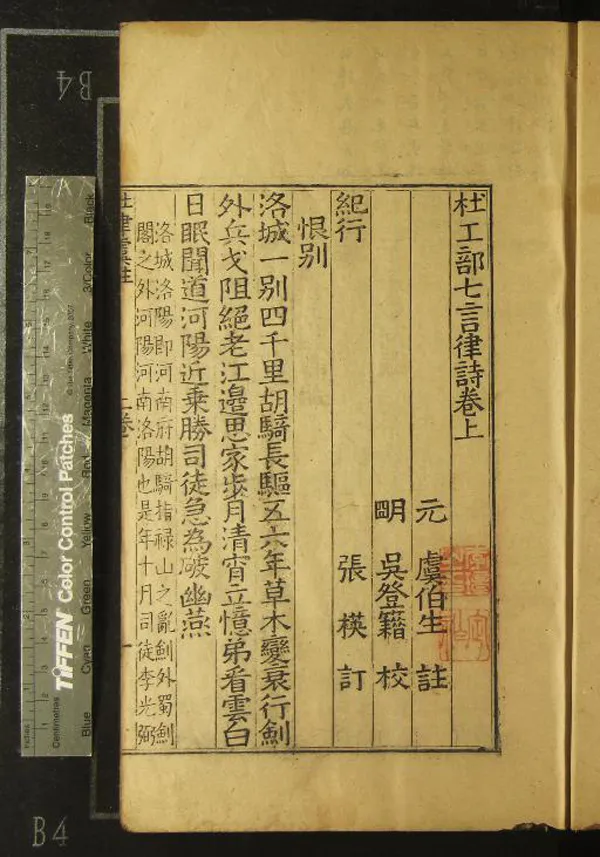 杜工部七言律詩卷上
元 虞伯生 註
明 吳登籍 校
張模 訂
紀行
恨别
洛城一别四千里胡騎長驅五六年草木變衰行劍
外兵戈阻絕老江邊思家步月清宵立憶弟看雲白
日眠聞道河陽近乗勝司徒急為破幽燕
洛城洛陽即河南府胡騎指禄山之亂劍外蜀劍
閣之外河陽河南洛陽也是年十月司徒李光弼
杜律虞註
上卷
一
B4
B4
TIFFEN Color Control Patches
Centimetres
Blue
Cyan
Green
Yellow
Red
Magenta
White
3/Color
Black